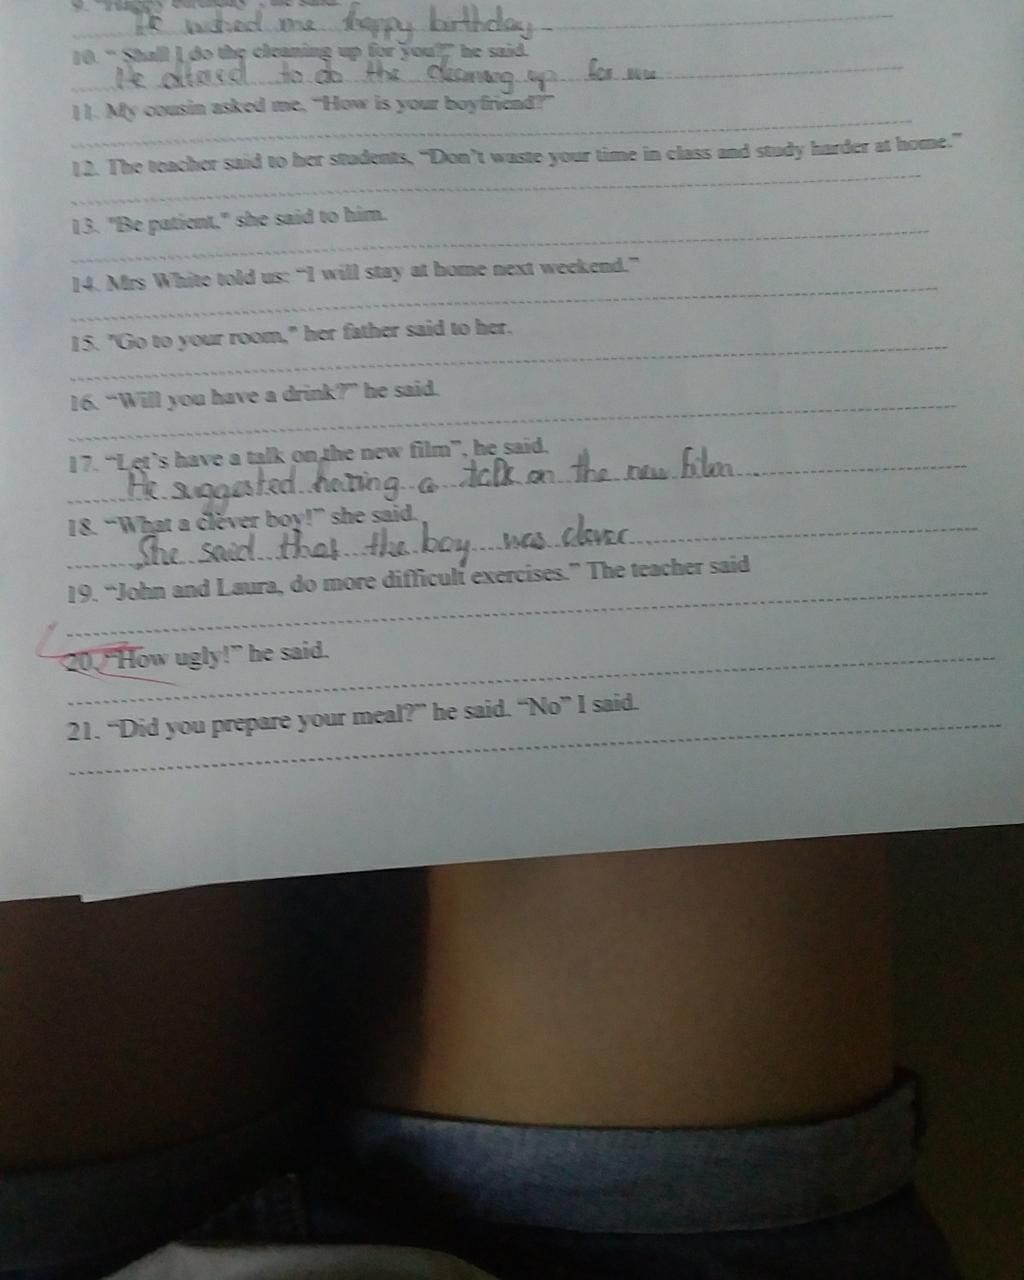 9. "Happy birthday", he said.
He wished me happy birthday
10. " Shall I do the cleaning up for you?" he said.
He offered to do the cleaning up for me
11. My cousin asked me, "How is your boyfriend?"
12. The teacher said to her students, "Don't waste your time in class and study harder at home."
13. "Be patient," she said to him.
14. Mrs White told us: "I will stay at home next weekend."
15. "Go to your room," her father said to her.
16. "Will you have a drink?" he said.
17. "Let's have a talk on the new film", he said.
He suggested having a talk on the new film
18. "What a clever boy!" she said.
She said that the boy was clever
19. "John and Laura, do more difficult exercises." The teacher said
20. "How ugly!" he said.
21. "Did you prepare your meal?" he said. "No" I said.